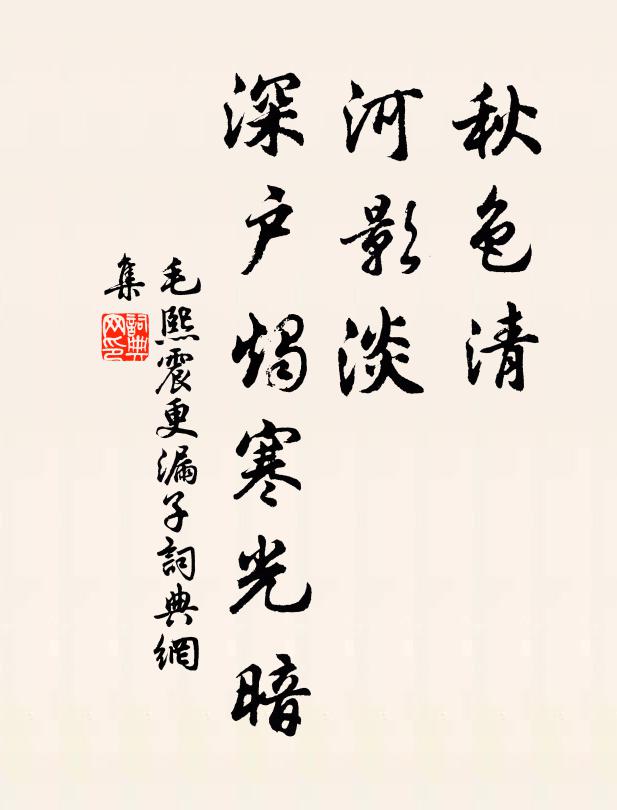 秋色清
河影淡
深户烛寒光暗
毛熙震更漏子詞典網
集
詞典網印